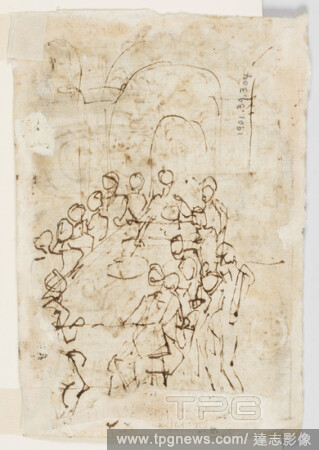 1901.39.304
TPG
www.tpgnews.com/ 達志影像